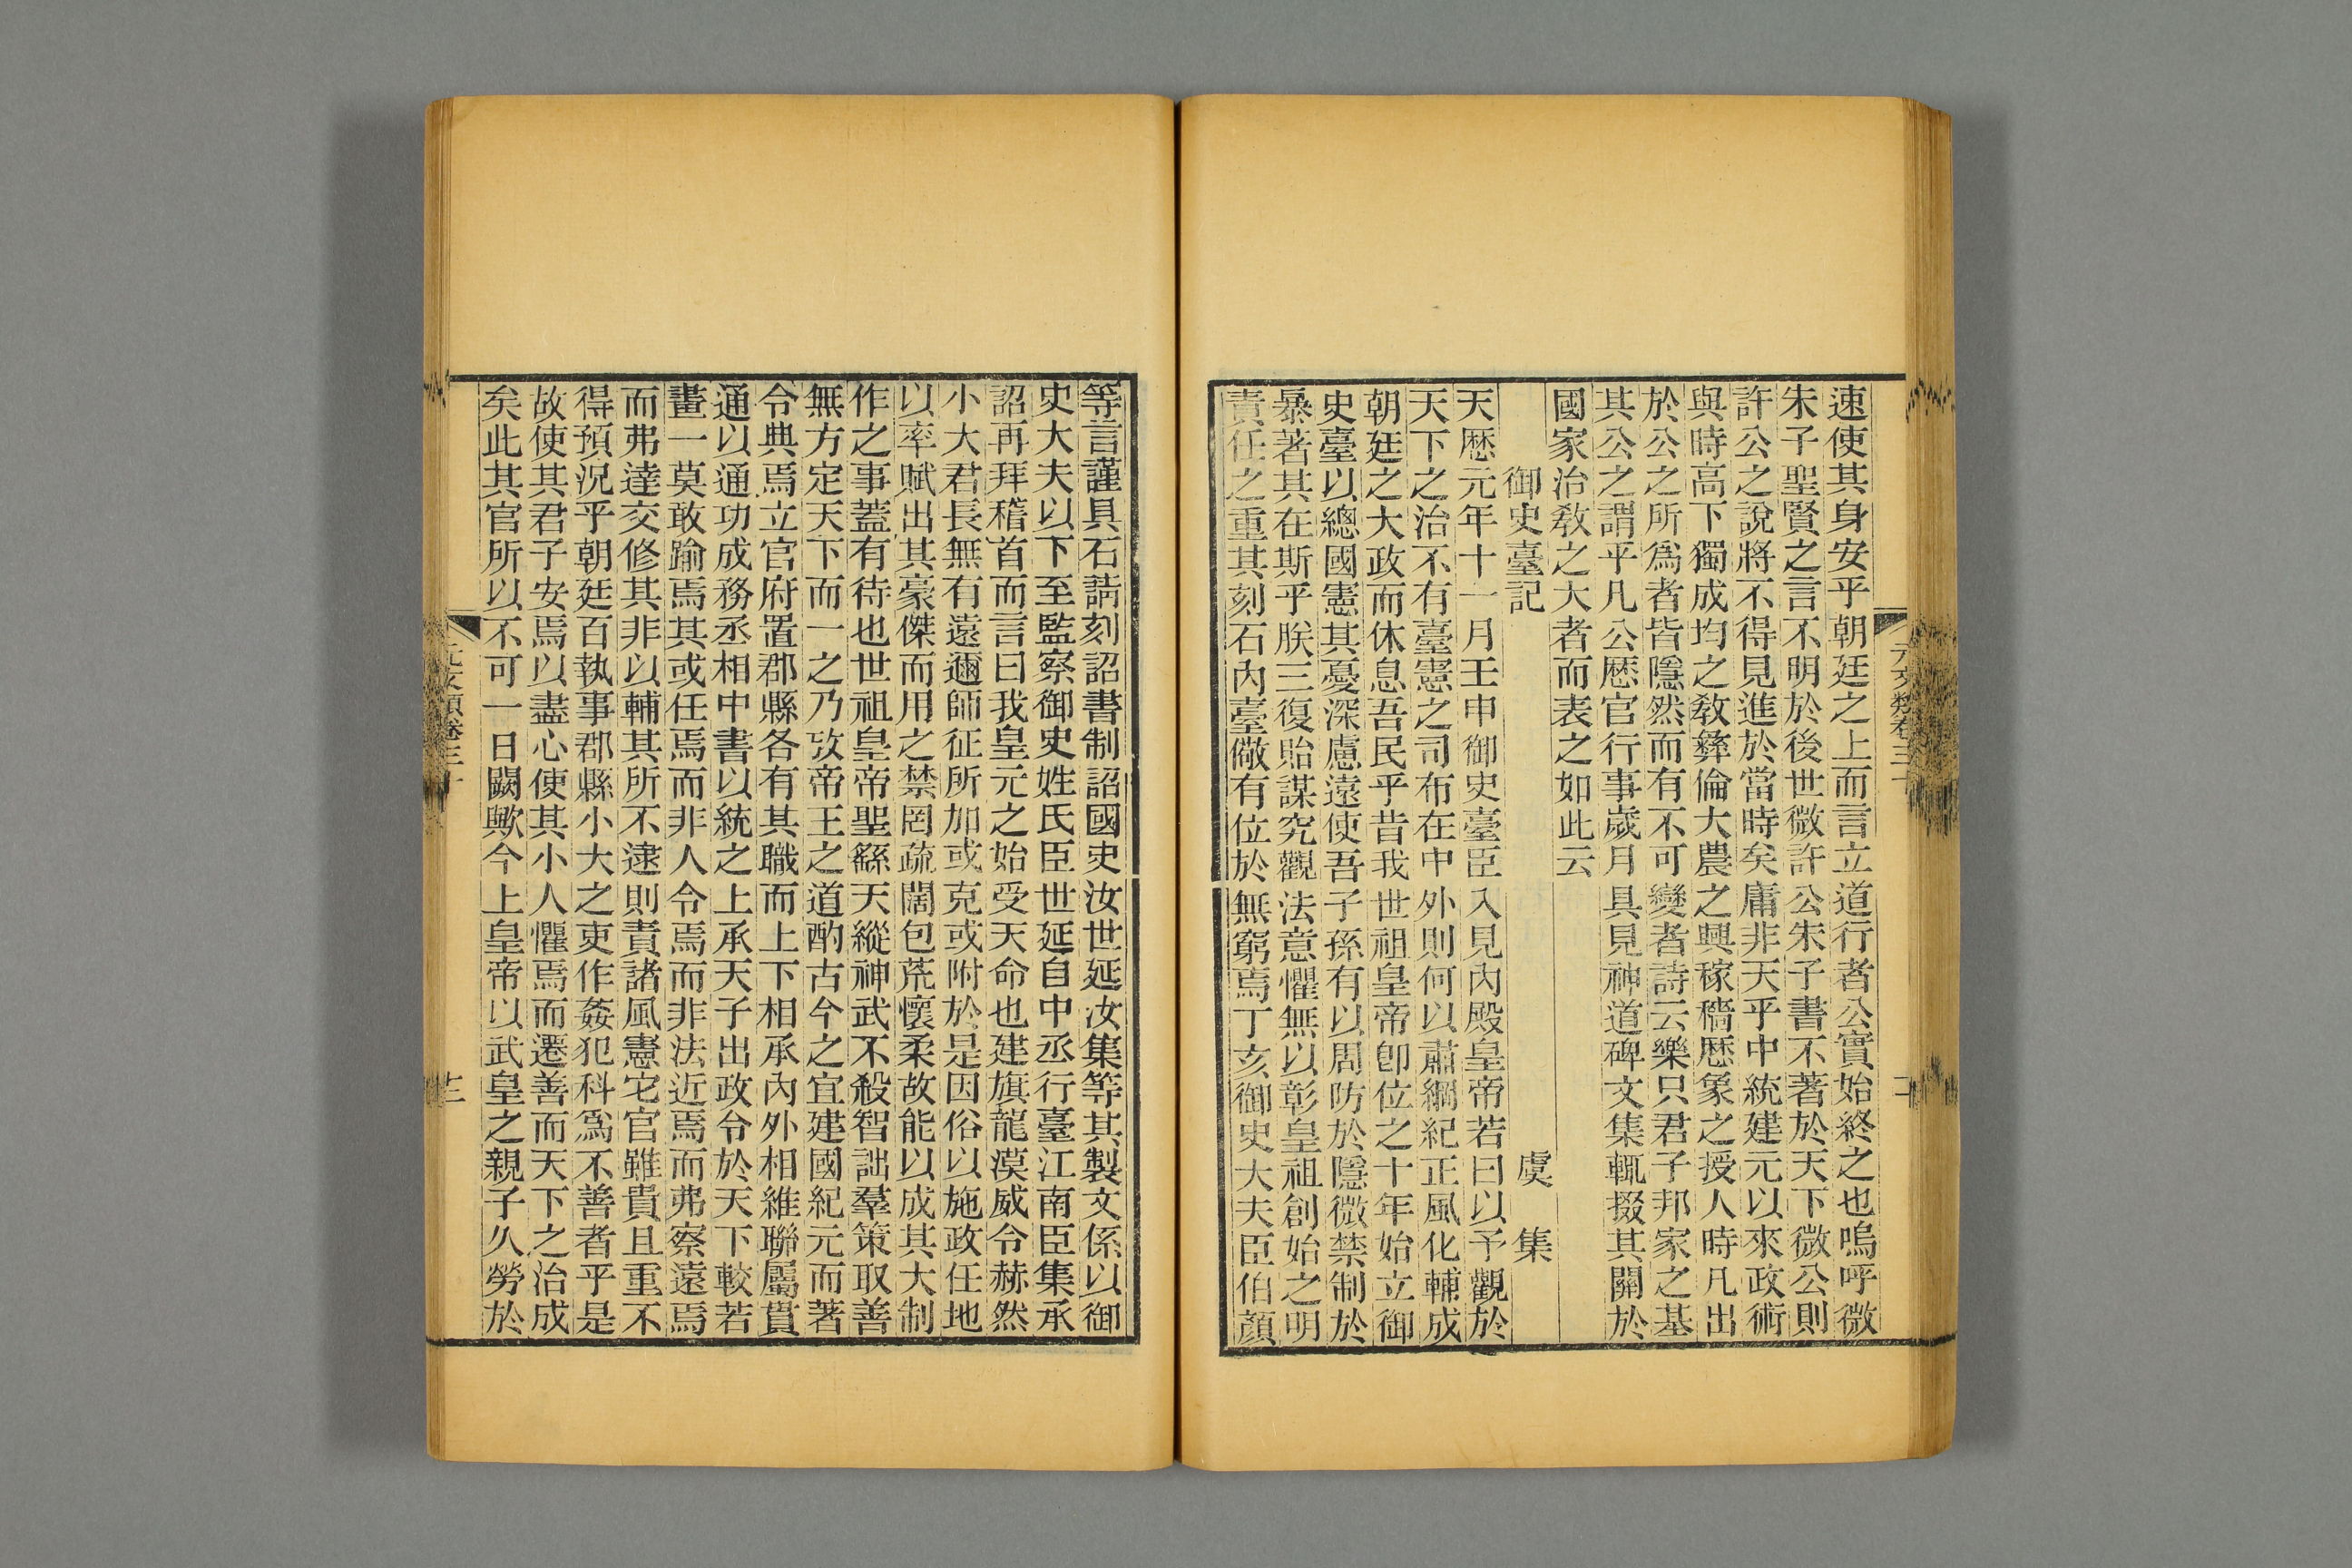 速使其身安乎朝廷之上而言立道行者公實始終之也嗚呼微
朱子聖賢之言不明於後世微許公朱子書不著於天下微公則
許公之說將不得見進於當時矣庸非天乎中統建元以來政術
與時高下獨成均之敎彝倫大農之興稼穡厯象之授人時凡出
於公之所爲者皆隱然而有不可變者詩云樂只君子邦家之基
其公之謂乎凡公厯官行事歲月具見神道碑文集輒掇其關於
國家治敎之大者而表之如此云
御史臺記 虞集
天厯元年十一月壬申御史臺臣入見內殿皇帝若曰以予觀於
天下之治不有臺憲之司布在中外則何以肅綱紀正風化輔成
朝廷之大政而休息吾民乎昔我世祖皇帝卽位之十年始立御
史臺以總國憲其憂深慮遠使吾子孫有以周防於隱微禁制於
暴著其在斯乎朕三復貽謀究觀法意懼無以彰皇祖創始之明
責任之重其刻石內臺儆有位於無窮焉丁亥御史大夫臣伯顏
等言謹具石請刻詔書制詔國史汝世延汝集等其製文係以御
史大夫以下至監察御史姓氏臣世延自中丞行臺江南臣集承
詔再拜稽首而言曰我皇元之始受天命也建旗龍漠威令赫然
小大君長無有遠邇師征所加或克或附於是因俗以施政任地
以率賦出其豪傑而用之禁罔疏闊包荒懷柔故能以成其大制
作之事蓋有待也世祖皇帝聖繇天縱神武不殺智詘羣策取善
無方定天下而一之乃攷帝王之道酌古今之宜建國紀元而著
令典焉立官府置郡縣各有其職而上下相承內外相維聯屬貫
通以通功成務丞相中書以統之上承天子出政令於天下較若
畫一莫敢踰焉其或任焉而非人令焉而非法近焉而弗察遠焉
而弗達交修其非以輔其所不逮則責諸風憲它官雖貴且重不
得預況乎朝廷百執事郡縣小大之吏作姦犯科爲不善者乎是
故使其君子安焉以盡心使其小人懼焉而遷善而天下之治成
矣此其官所以不可一日闕歟今上皇帝以武皇之親子久勞於